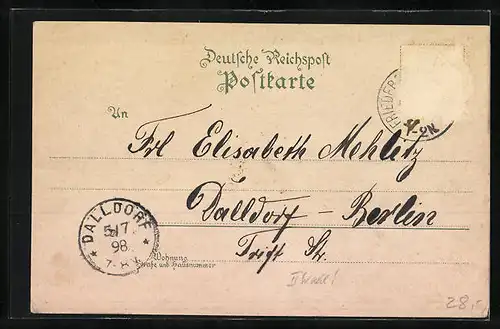 Deutsche Reichspost
Postkarte
An
FRIEDER
Frl Elisabeth Mehlitz
Dalldorf - Berlin
Trift Str.
DALLDORF
5/7
98
7-8
Wohnung
Straße und Hausnummer
28,-